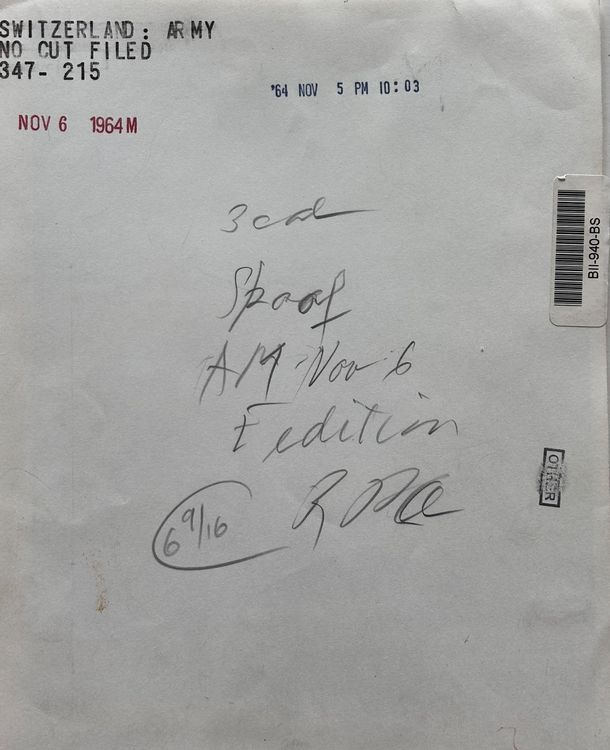 SWITZERLAND: ARMY
NO CUT FILED
347- 215
'64 NOV 5 PM 10:03
NOV 6 1964M
3 col
Spoof
AM Nov 6
F edition
6 9/16
BII-940-BS
OTHER